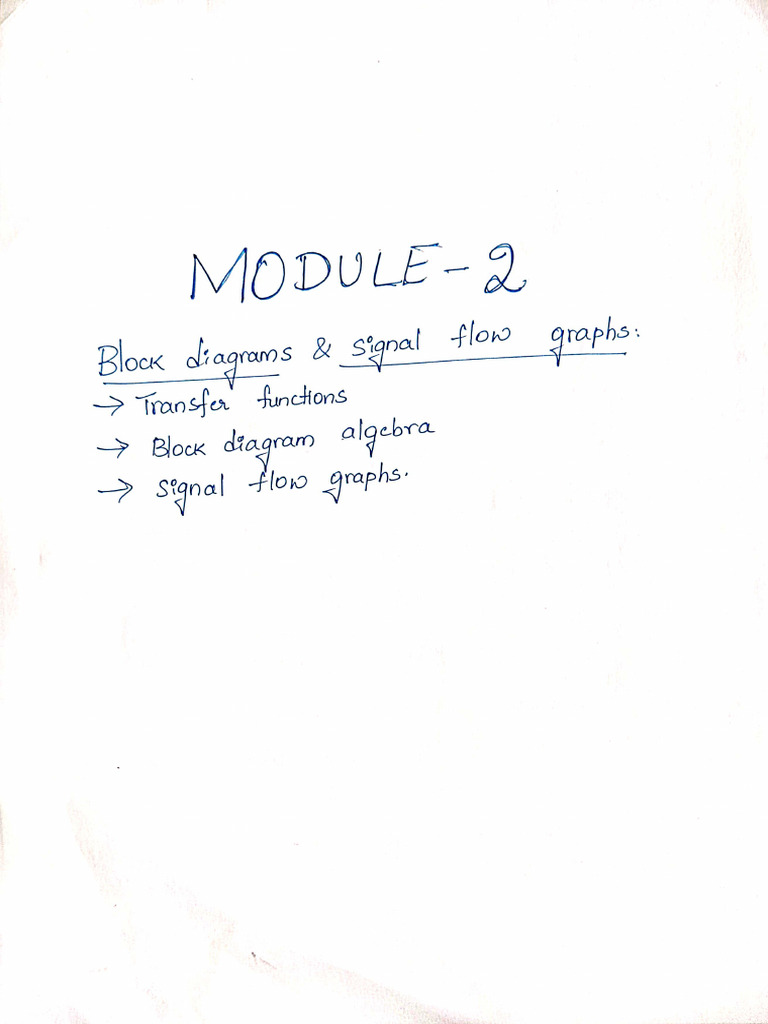 MODULE - 2
Block diagrams & signal flow graphs:
→ Transfer functions
→ Block diagram algebra
→ signal flow graphs.